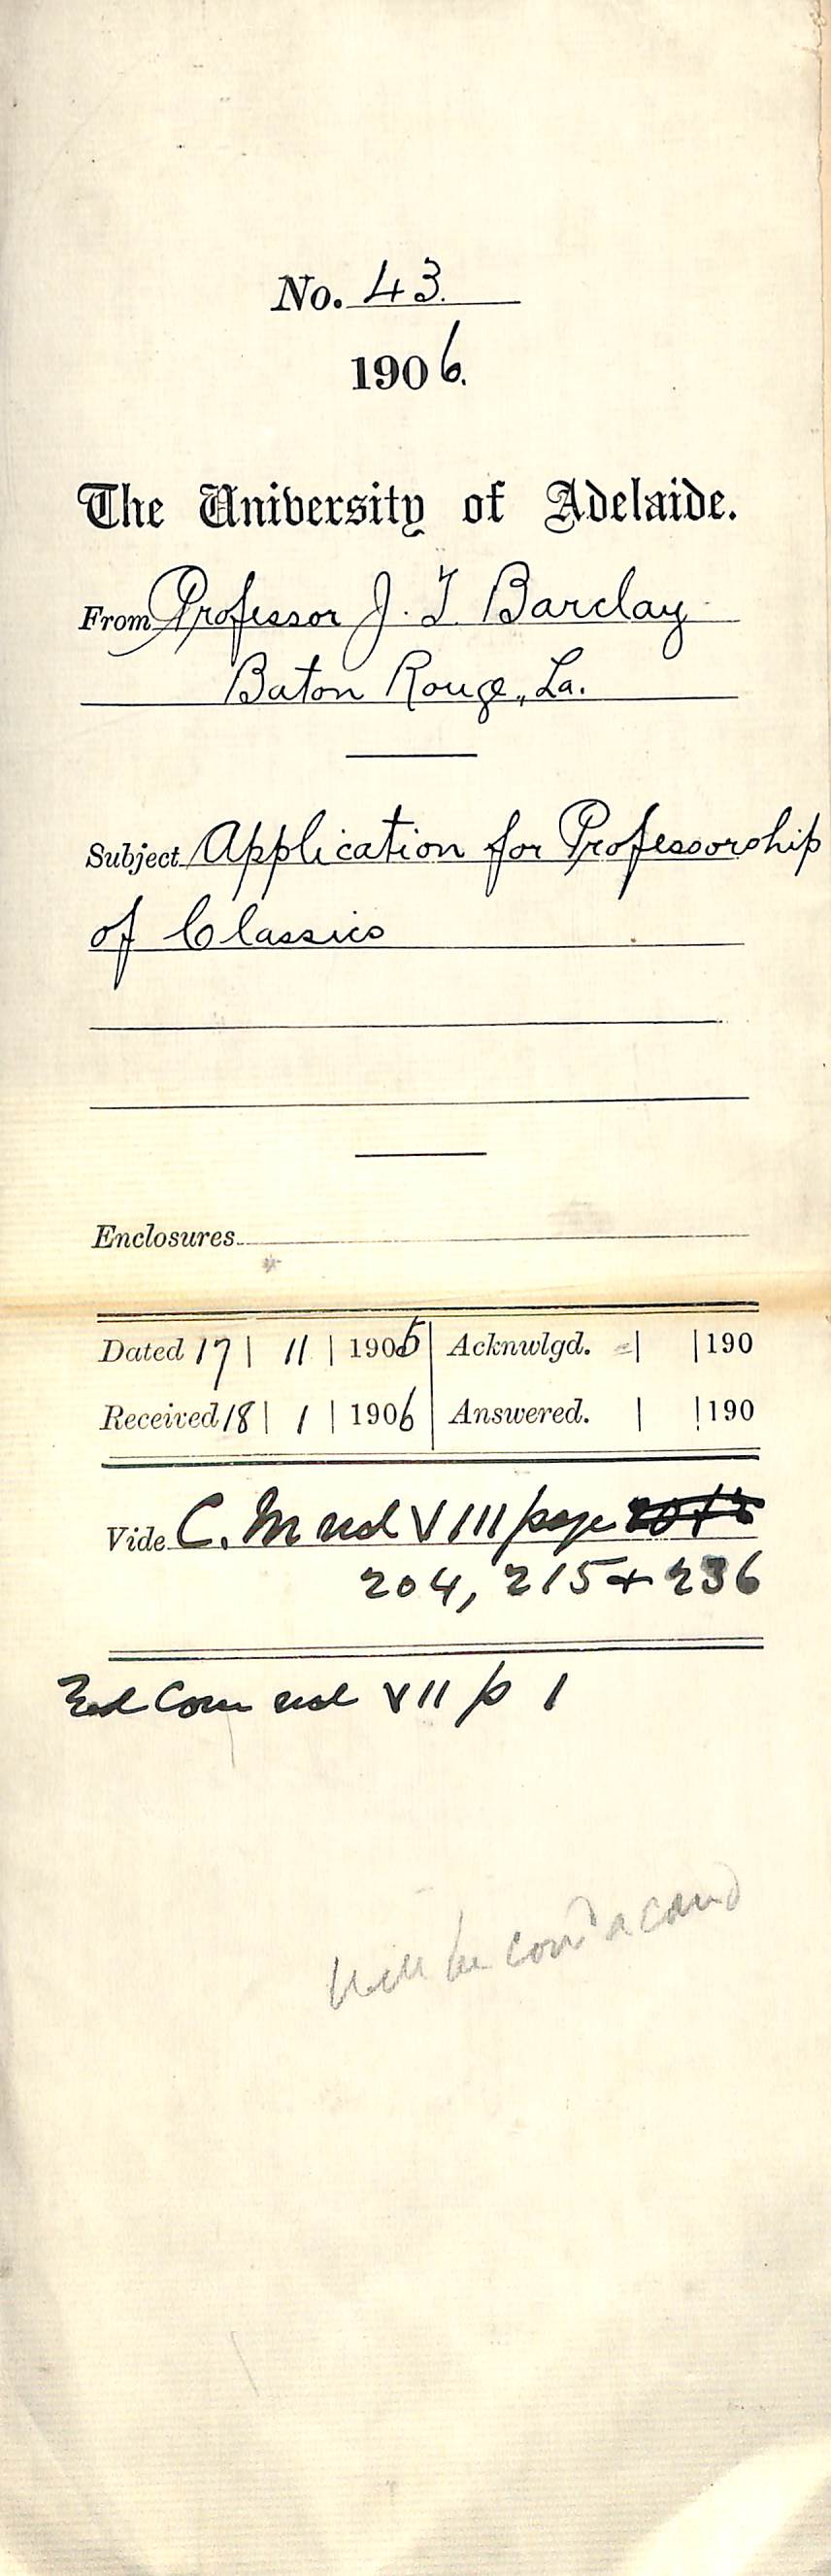 No. 43.
1906.
The University of Adelaide.
From Professor J. T. Barclay
Baton Rouge, La.
Subject Application for Professorship
of Classics
Enclosures
Dated 17 | 11 | 1905 Acknwlgd. | | 190
Received 18 | 1 | 1906 Answered. | | 190
Vide C. M vol VIII page
204, 215 + 236
Ed Com vol VII p 1
Will be a